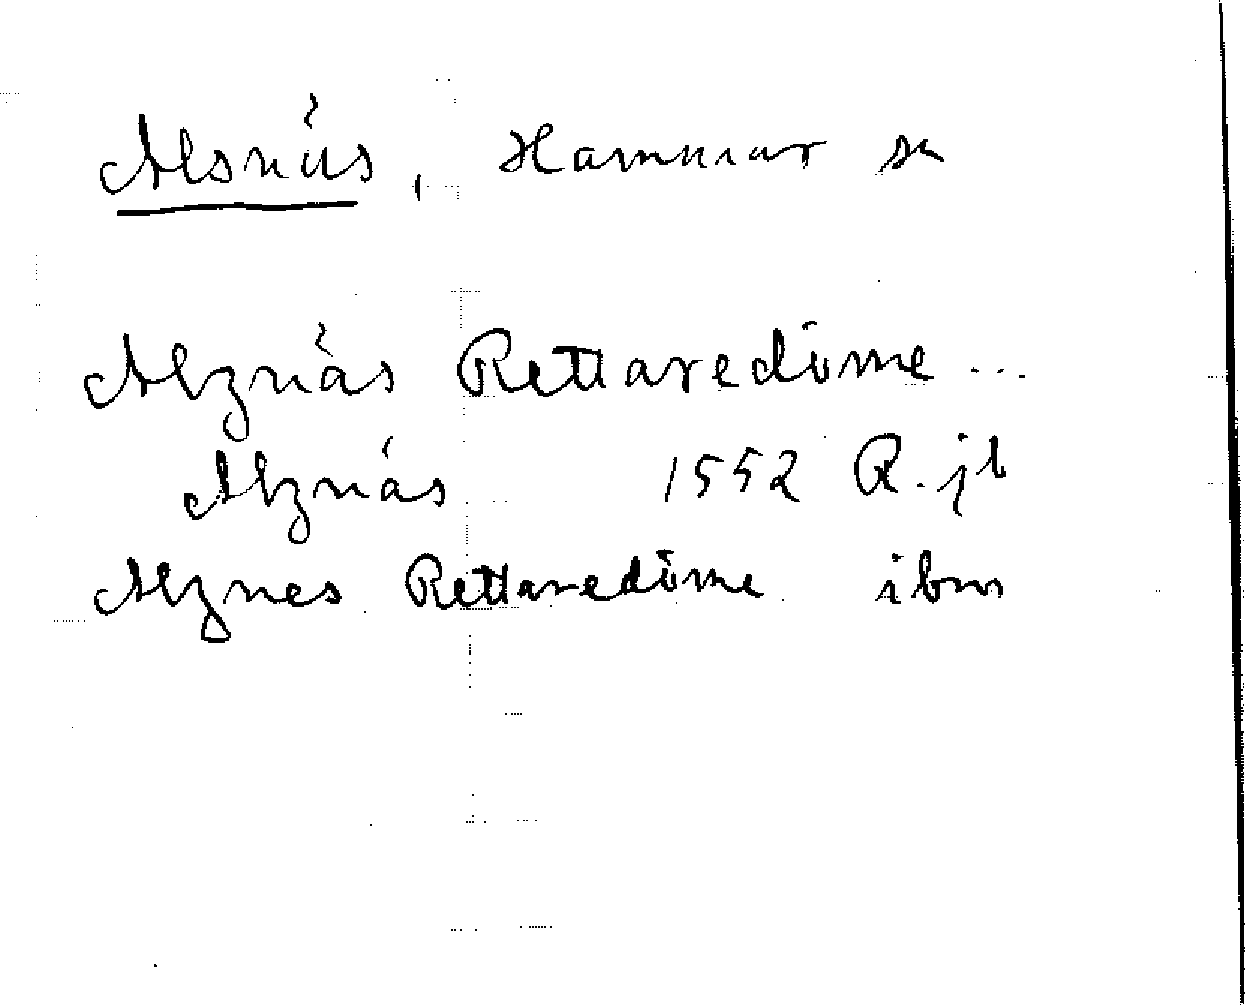 Alsnäs, Hammar sn
Alznäs Rettaredöme ...
Alznäs 1552 R. jb
Alznes Rettaredöme ibm